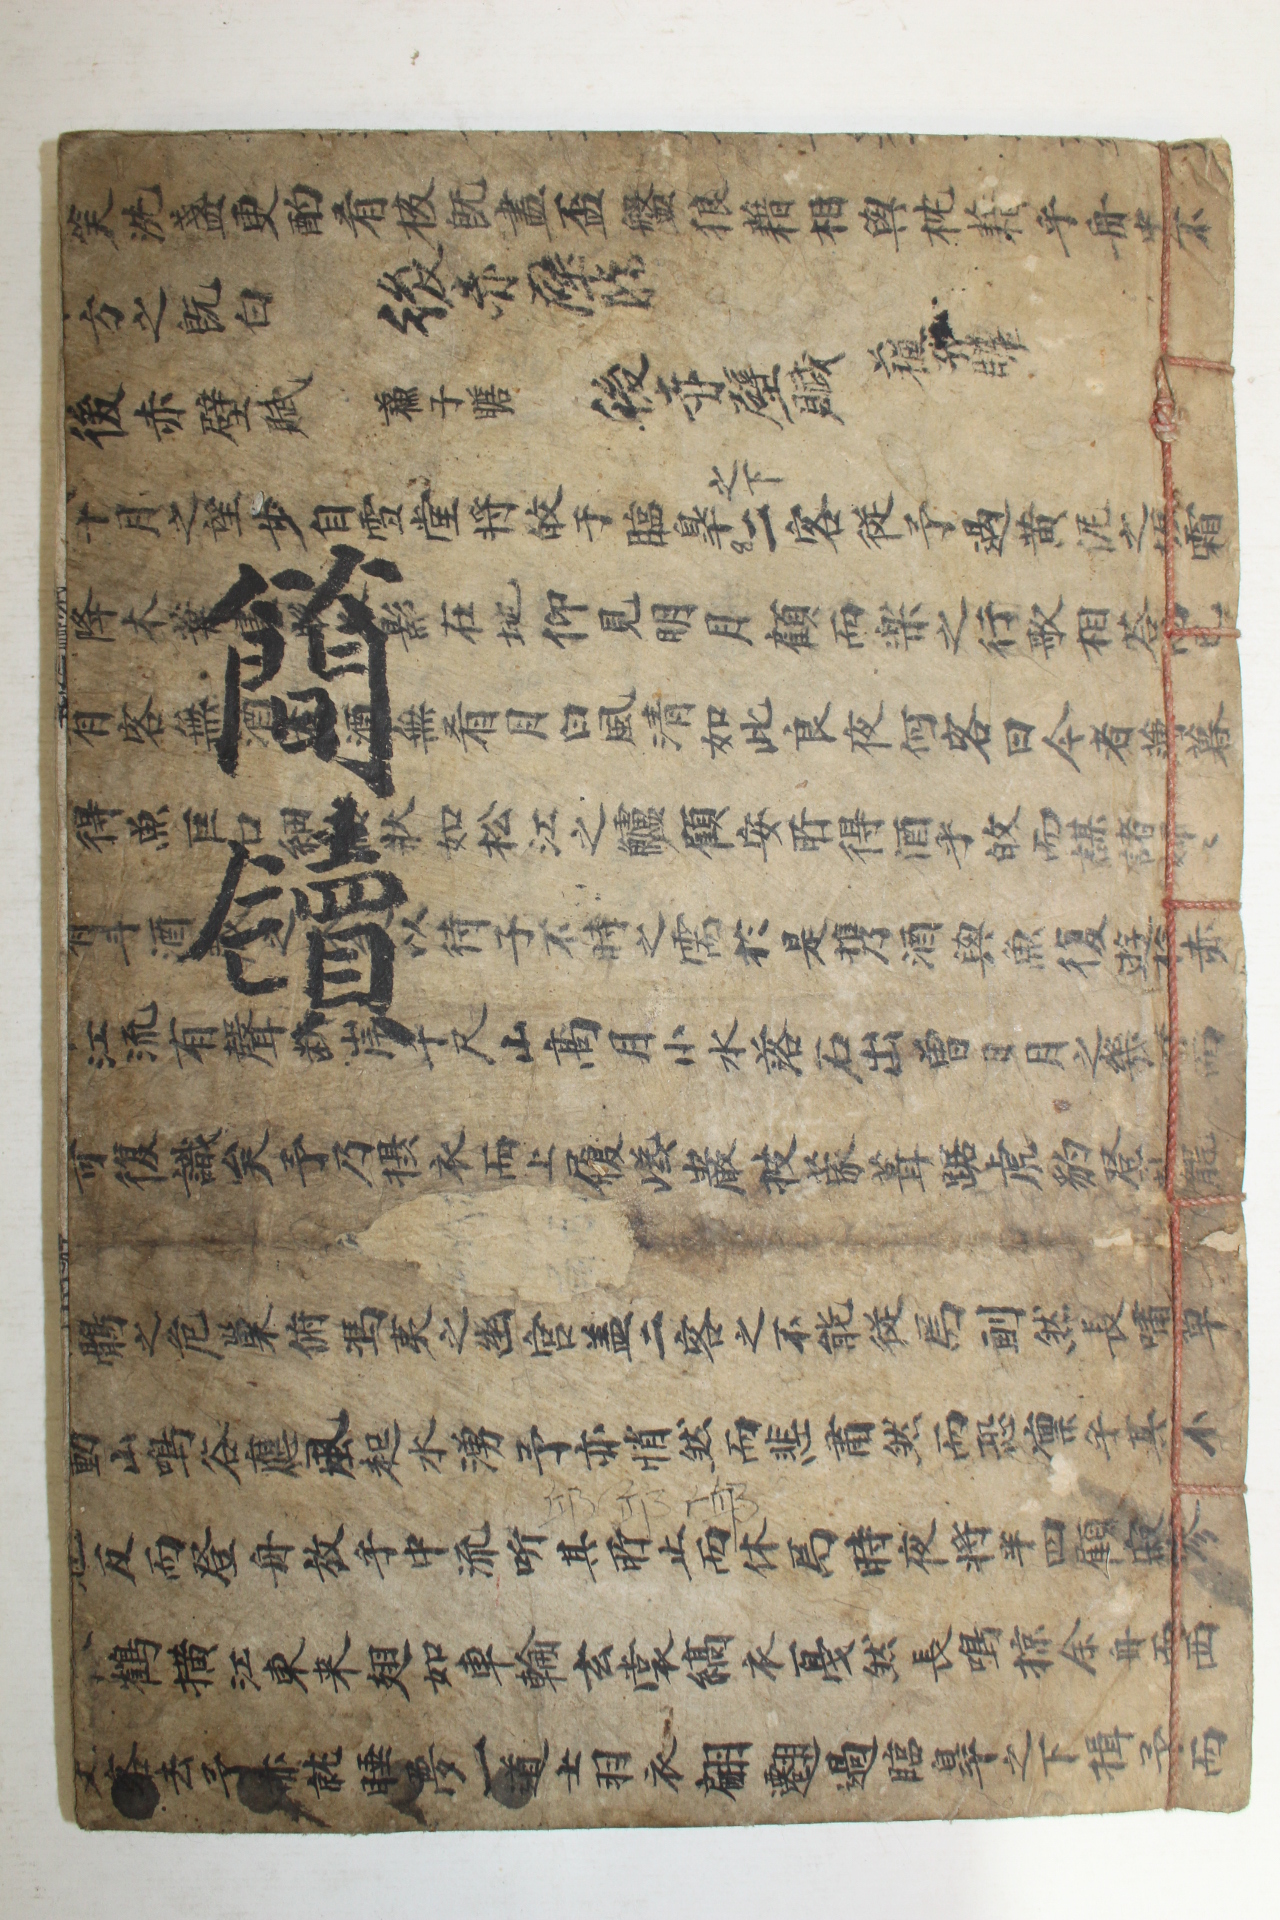 笑洗盞更酌肴核旣盡盃盤狼藉相與枕藉乎舟中不
方之旣白
後赤壁
後赤壁賦 蘇子瞻
後赤壁賦
之下
十月之望步自雪堂將皈于臨皐二客從予過黃泥之坂霜
降木葉盡 影在地仰見明月顧而樂之行歌相答已
有客無酒 酒無肴月白風淸如此良夜何客曰今者薄暮
得魚巨口細 狀如松江之鱸顧安所得酒乎皈而謀諸婦
有斗酒 之 以待子不時之需於是携酒與魚復遊於赤
江流有聲斷岸千尺山高月小水落石出曾日月之幾 而
可復識矣予乃攝衣而上履巉巖披蒙茸踞虎豹登 龍
鶻之危巢俯馮夷之幽宮盖二客之不能從焉劃然長嘯草
動山鳴谷應風起水湧予亦悄然而悲肅然而恐凜乎其不
也反而登舟放乎中流听其所止而休焉時夜將半四顧寂寥
鶴橫江東來翅如車輪玄裳縞衣戞然長鳴掠余舟而西
客去予亦就睡夢一道士羽衣翩躚過臨皐之下揖予而